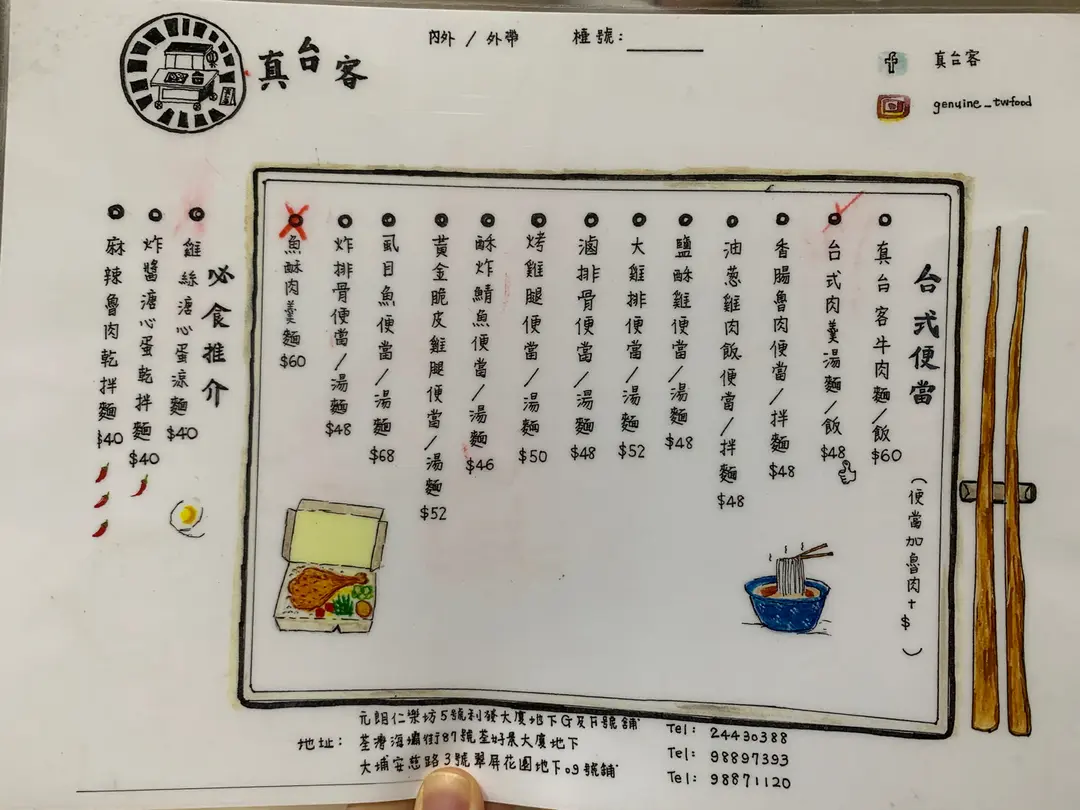 真台客
內外 / 外帶 檯號:
真台客
genuine_twfood
台式便當
(便當加魯肉+$ )
真台客牛肉麵/飯 $60
台式肉羹湯麵/飯 $48
香腸魯肉便當/拌麵 $48
油葱雞肉飯便當/拌麵 $48
鹽酥雞便當/湯麵 $48
大雞排便當/湯麵 $52
滷排骨便當/湯麵 $48
烤雞腿便當/湯麵 $50
酥炸鯖魚便當/湯麵 $46
黃金脆皮雞腿便當/湯麵 $52
虱目魚便當/湯麵 $68
炸排骨便當/湯麵 $48
魚酥肉羹麵 $60
必食推介
雞絲溏心蛋涼麵 $40
炸醬溏心蛋乾拌麵 $40
麻辣魯肉乾拌麵 $40
地址:
元朗仁樂坊5號利發大廈地下G及F號舖 Tel: 24430388
荃灣海壩街87號荃好景大廈地下 Tel: 98897393
大埔安慈路3號翠屏花園地下09號舖 Tel: 98871120